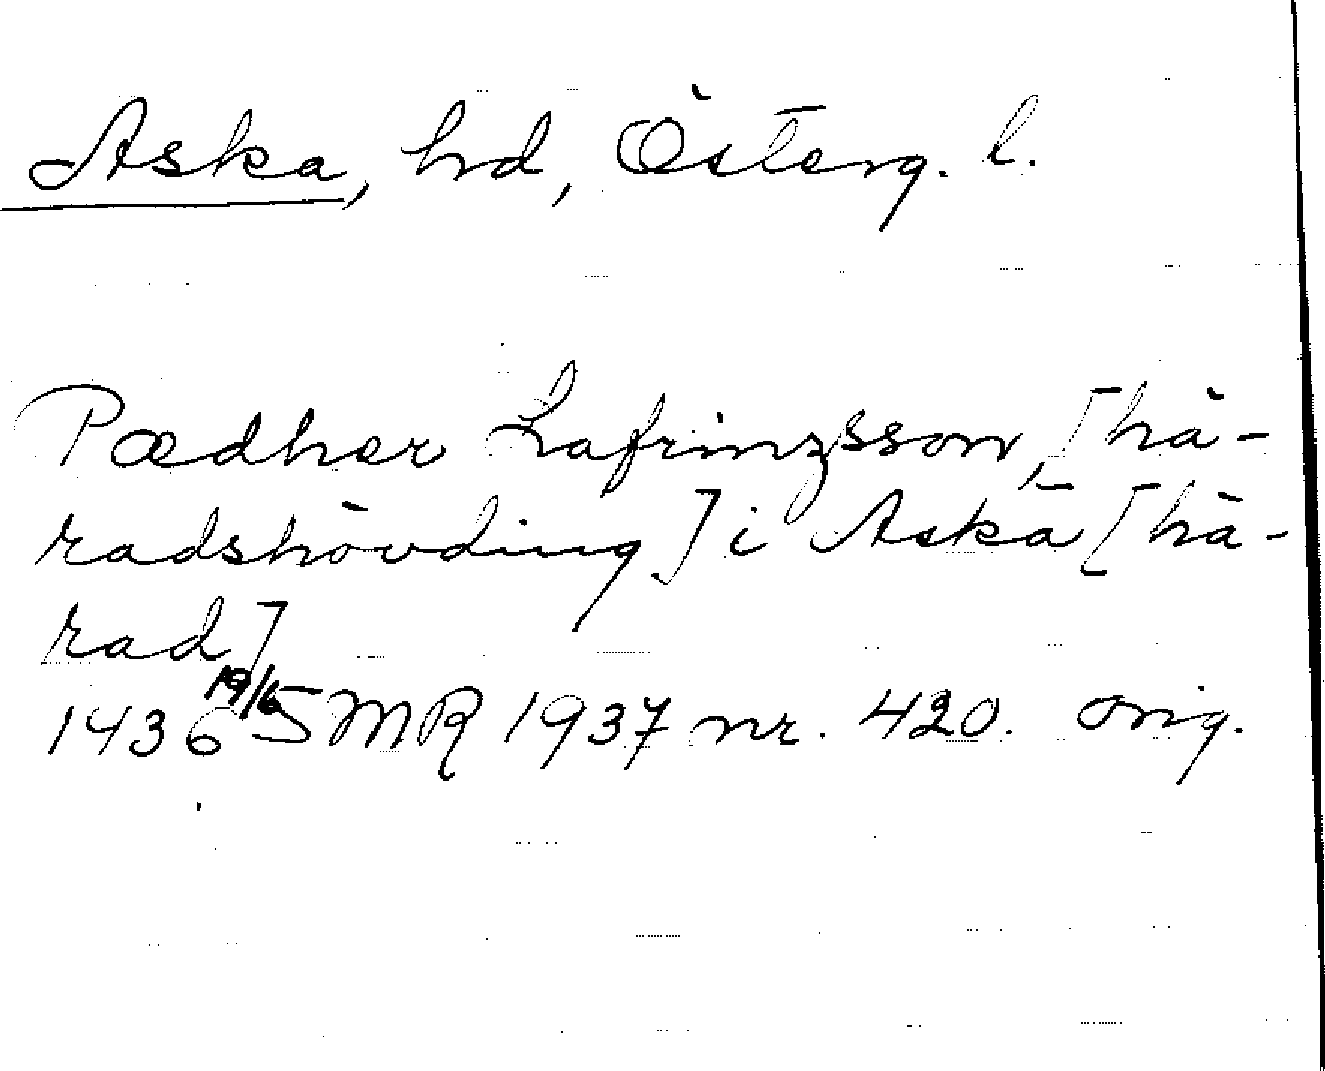 Aska, hd, Österg. l.
Pædher Lafrinzsson, [hä-
radshövding] i Aska [hä-
rad]
1436 19/6 SMR 1937 nr. 420. orig.